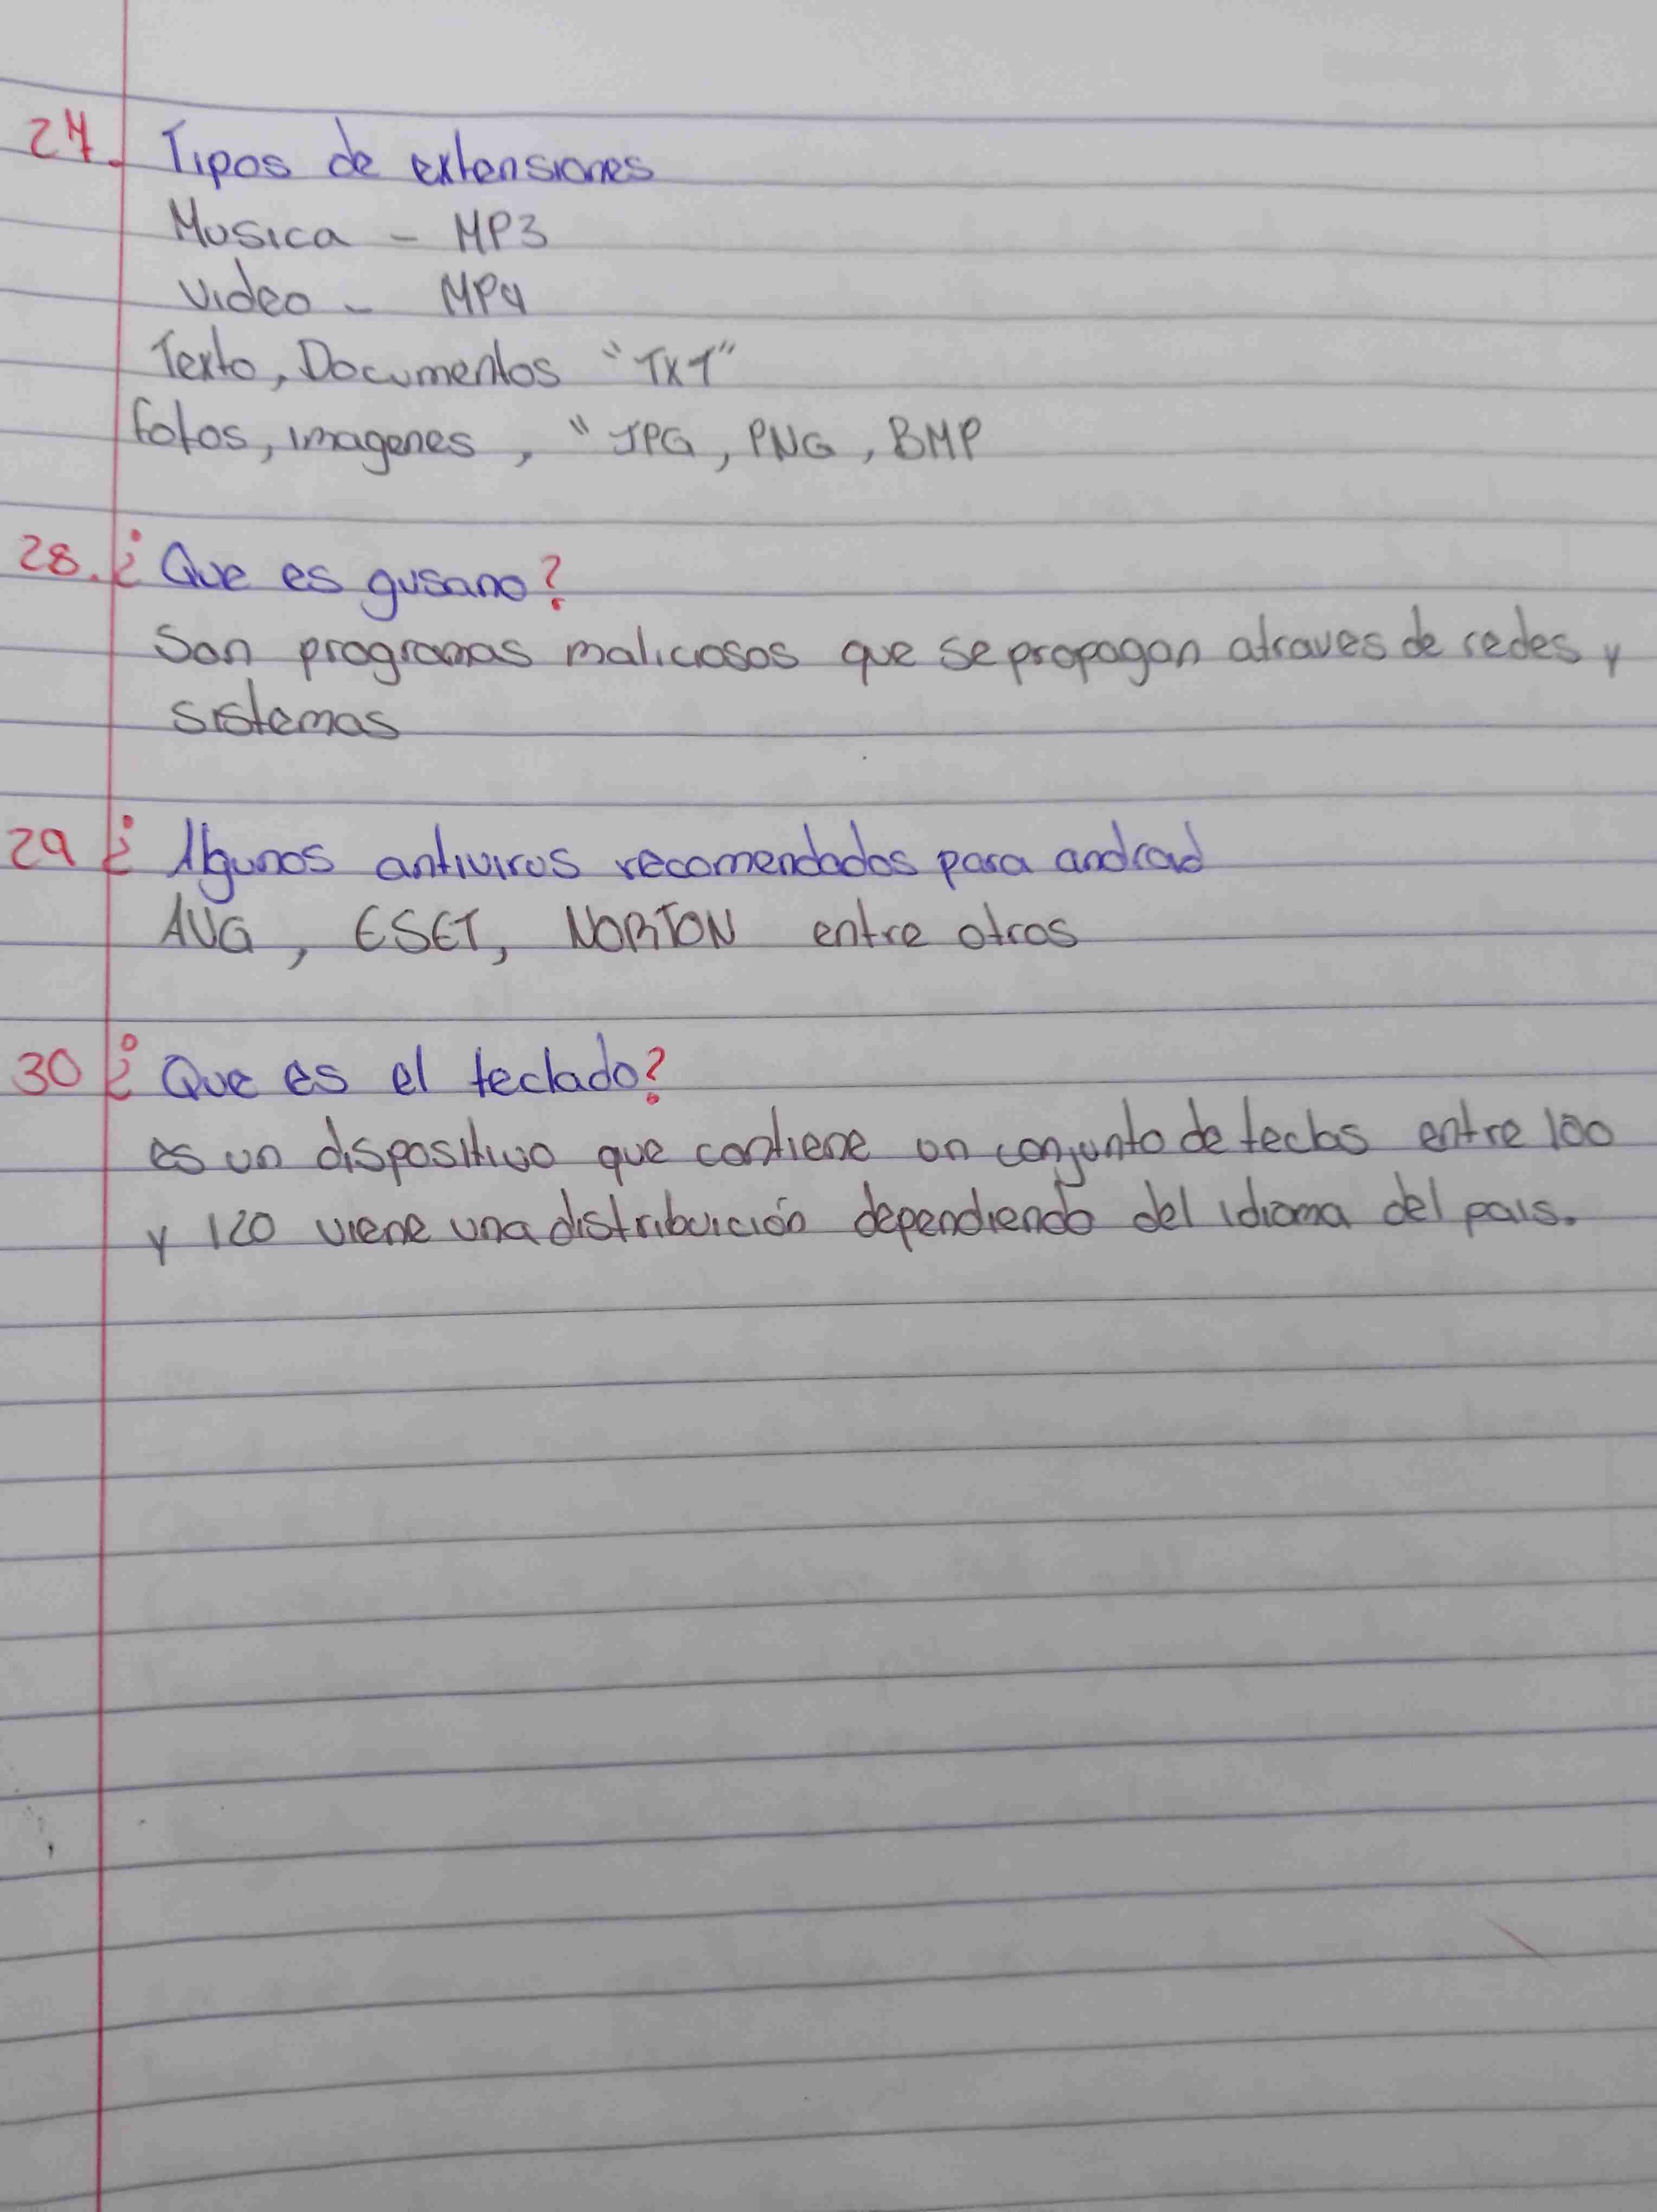 27. Tipos de extensiones
Musica - MP3
Video - MP4
Texto, Documentos "TXT"
fotos, imagenes, "JPG, PNG, BMP
28. ¿Que es gusano?
Son programas maliciosos que se propagan atraves de redes y
sistemas
29 ¿Algunos antivirus recomendados para android
AVG, ESET, NORTON entre otros
30 ¿Que es el teclado?
es un dispositivo que contiene un conjunto de teclas entre 100
y 120 viene una distribuición dependiendo del idioma del pais.